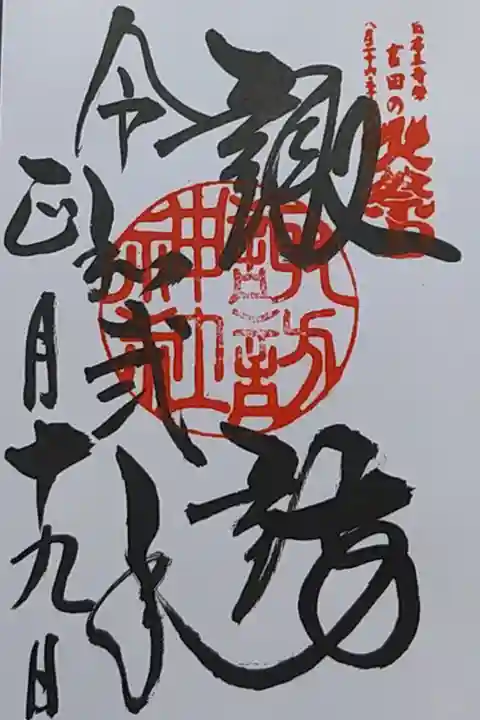 日本三奇祭
吉田の火祭
八月二十六・二十七
諏訪
諏訪
神社
令和弐年
正月十九日